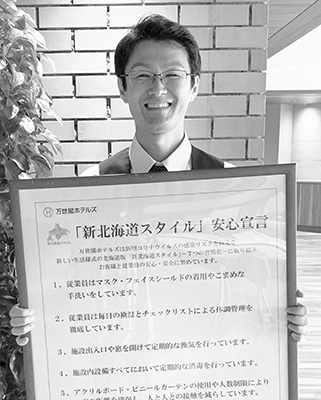 万世閣ホテルズ
「新北海道スタイル」安心宣言
万世閣ホテルズは新型コロナウイルスの感染リスクを
新しい生活様式の北海道版「新北海道スタイル」
お客様と従業員の安心・安全に努めています。
1. 従業員はマスク・フェイスシールドの着用やこまめな
手洗いをしています。
2. 従業員は毎日の検温とチェックリストによる体調管理を
徹底しています。
3. 施設出入口や窓を開けて定期的な換気を行っています。
4. 施設内設備すべてにおいて定期的な消毒を行っています。
5. アクリルボード・ビニールカーテンの使用や人数制限により
人と人との接触を減らしています。